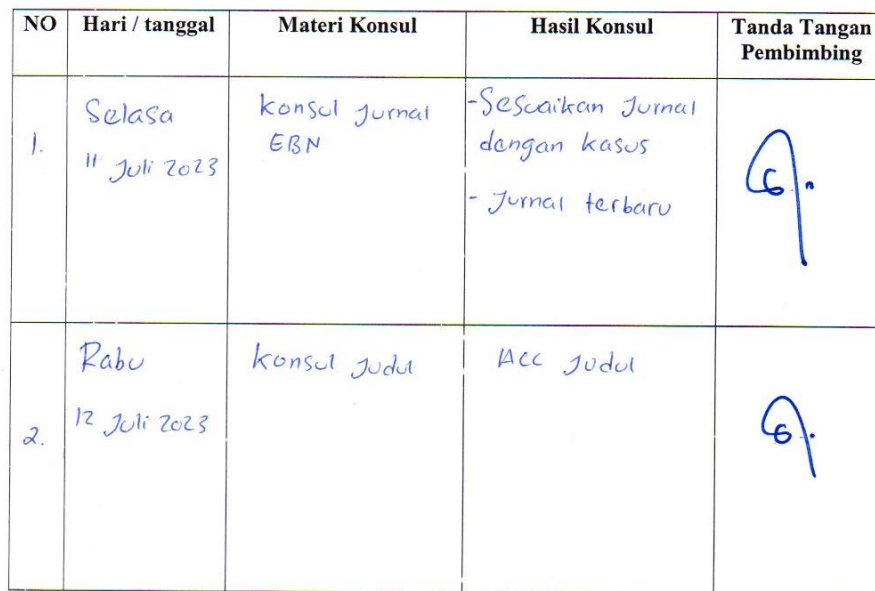 NO Hari / tanggal Materi Konsul Hasil Konsul Tanda Tangan
Pembimbing
1. Selasa
11 Juli 2023
konsul Jurnal
EBN
- Sesuaikan Jurnal
dengan kasus
- Jurnal terbaru
2. Rabu
12 Juli 2023
konsul Judul
Acc Judul